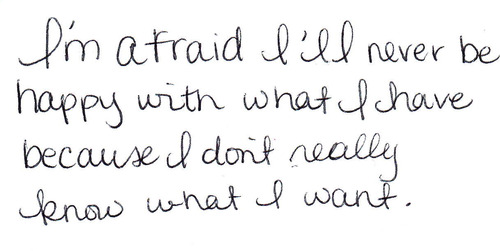 I'm afraid I'll never be
happy with what I have
because I don't really
know what I want.